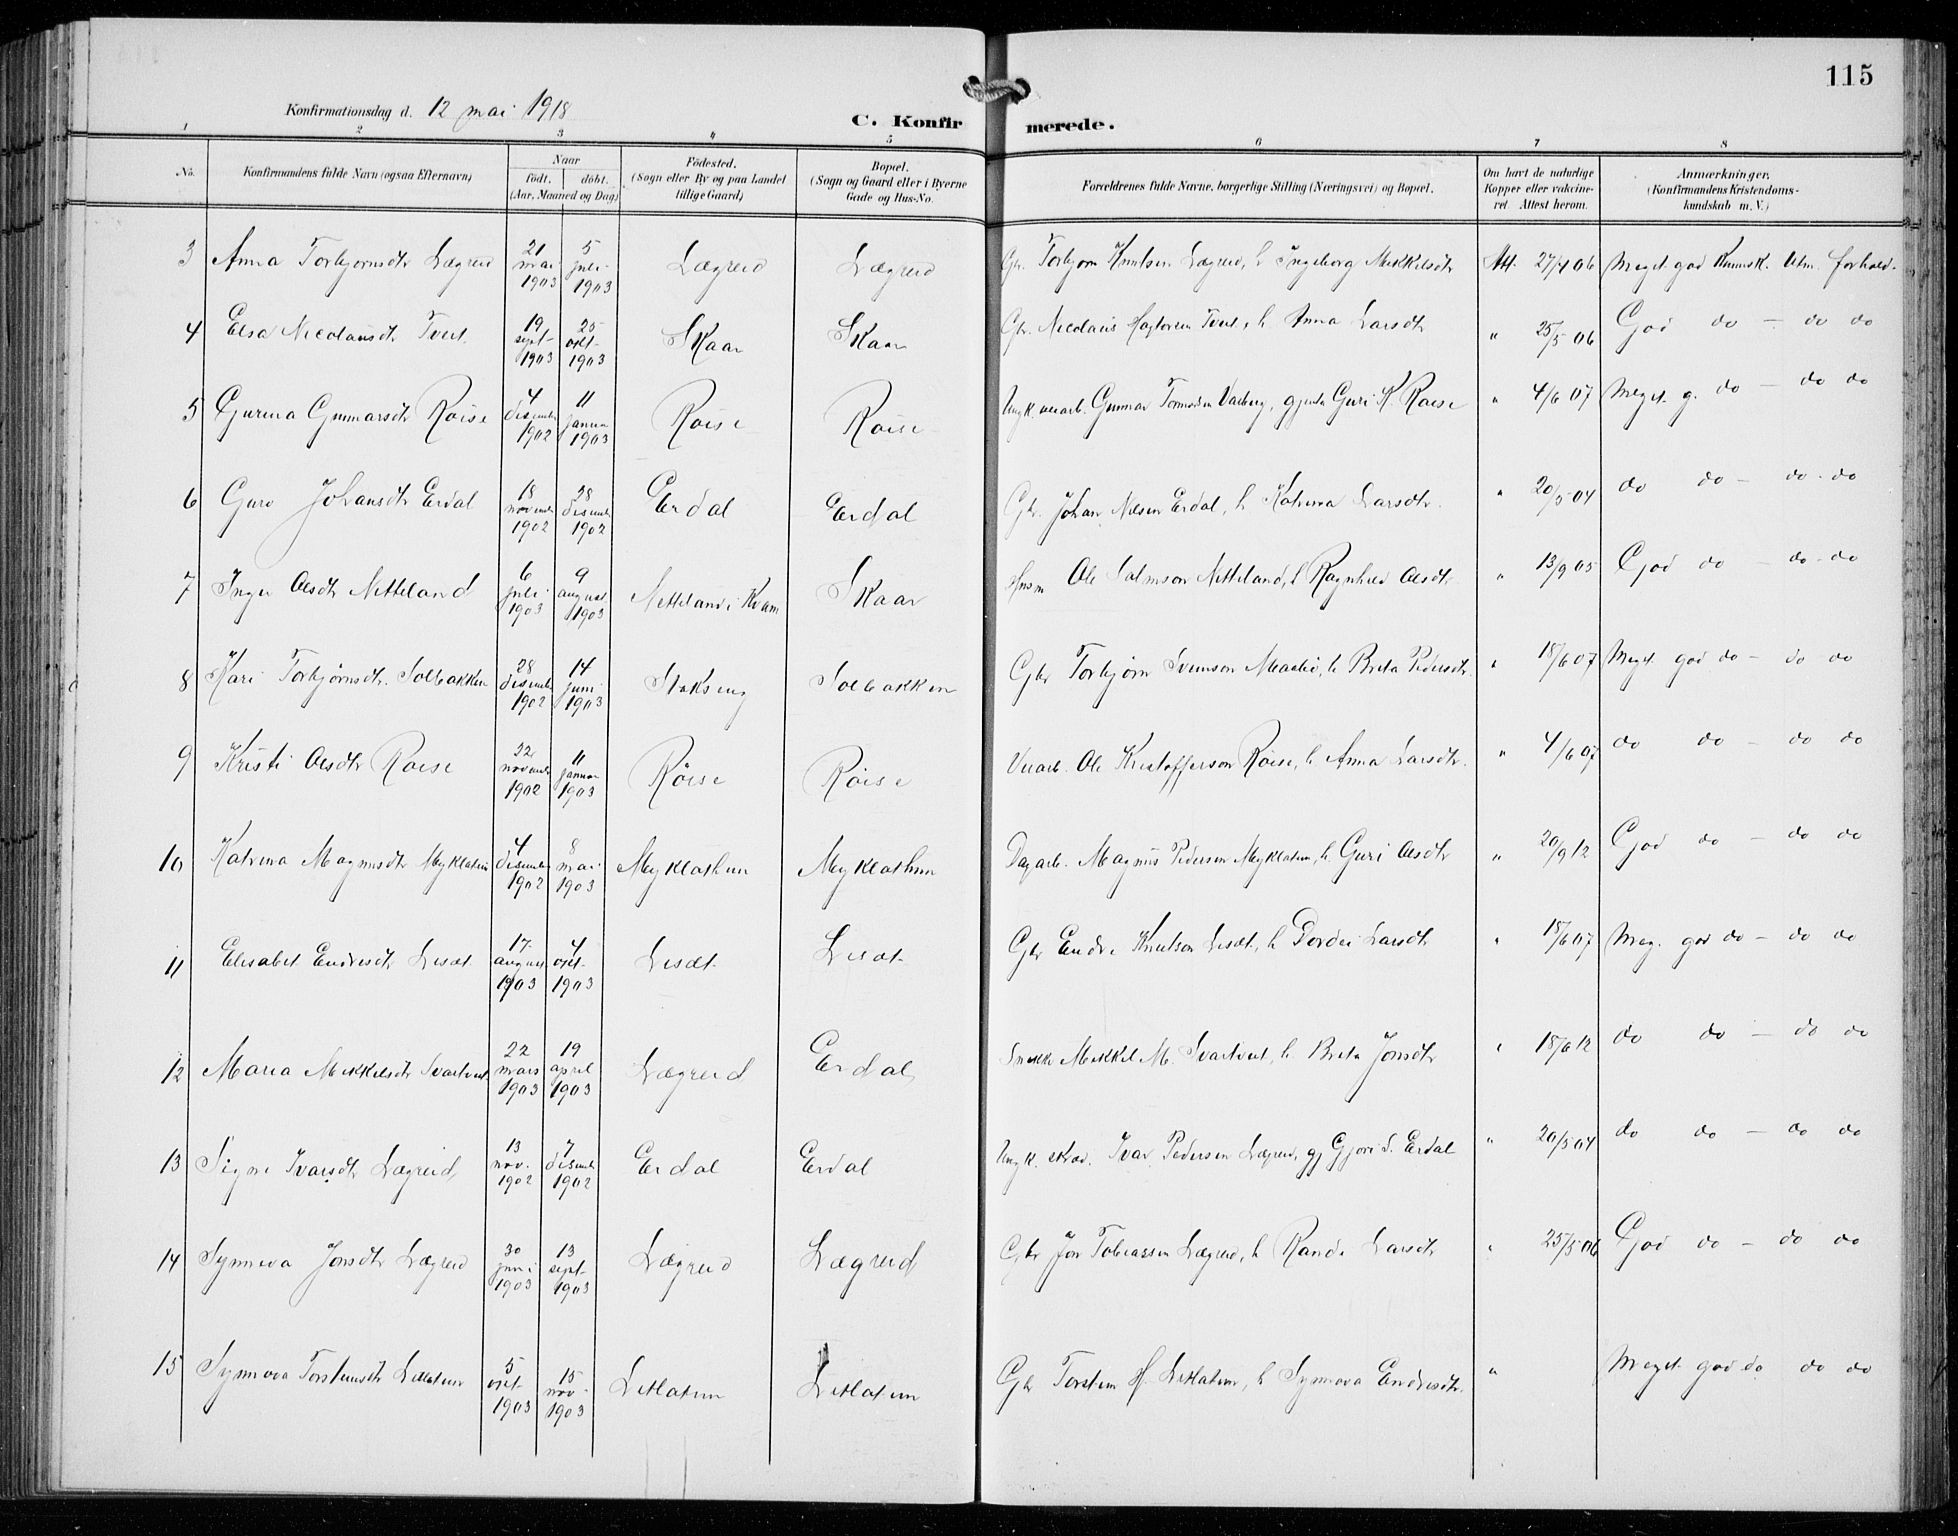 115
Konfirmationsdag d. 12 mai 1918
C. Konfirmerede.
1 2 3 4 5 6 7 8
No. Konfirmandens fulde Navn (ogsaa Efternavn) Naar født. døbt. (Aar, Maaned og Dag) Fødested. (Sogn eller By og paa Landet tillige Gaard) Bopæl. (Sogn og Gaard eller i Byerne Gade og Hus-No. Forældrenes fulde Navne, borgerlige Stilling (Næringsvei) og Bopæl. Om havt de naturlige Kopper eller vakcineret. Attest herom. Anmærkninger. (Konfirmandens Kristendomskundskab m. V.)
3 Anna Torbjornsdtr Lægreid 21 mai 1903 5 juli 1903 Lægreid Lægreid Gbr. Torbjorn Knutsen Lægreid, h Ingeborg Mikkelsdtr Att. 27/4 06 Meget god Kunnsk. Utm. forhold.
4 Elsa Nicolausdtr Tveit 19 sept 1903 25 okt 1903 Skaar Skaar Gbr. Nicolaus Tveit, h Anna Larsdtr " 25/5 06 God do - do do
5 Gurina Gunnarsdtr Røise 4 disember 1902 11 januar 1903 Røise Røise Ungk. Gunnar Varberg, gjenta Guri K. Røise " 4/6 07 Meget g. do - do do
6 Guro Johansdtr Erdal 18 november 1902 28 disember 1902 Erdal Erdal Gbr. Johan Nilsen Erdal, h Katrina Larsdtr. " 20/5 04 do do - do - do
7 Inga Olsdtr Netteland 6 juli 1903 9 august 1903 Netteland i Kvam Skaar Husm Ole Salmson Netteland, h Ragnhild Olsdtr " 13/9 05 God do - do - do
8 Kari Torbjørnsdtr. Solbakken 28 disember 1902 14 juni 1903 Stokseng Solbakken Gbr Torbjørn Svenson h Brita Pedersdtr. " 18/6 07 Meget god do - do do
9 Kristi Olsdtr Røise 22 november 1902 11 januar 1903 Røise Røise Ole Kristofferson Røise, h Anna Larsdtr. " 4/6 07 do do - do do
10 Katrina Magnusdtr Myklatun 4 disember 1902 8 mai 1903 Myklathun Myklathun Dagarb. Magnus Pedersen Myklatun, h. Guri Olsdtr " 20/9 12 God do - do do
11 Elisabet Endresdtr Lisæt 17 august 1903 4 okt 1903 Lisæt Lisæt Gbr Endre Knutson Lisæt, h Dordei Larsdtr " 18/6 07 Meg. god do - do do
12 Maria Mikkelsdtr Svartveit 22 mars 1903 19 april 1903 Lægreid Erdal Mikkel M. Svartveit, h Brita Jonsdtr " 18/6 12 do do - do do
13 Signe Ivarsdtr Lægreid 13 nov. 1902 7 disember 1902 Erdal Erdal Ungk. Ivar Pedersen Lægreid, gj Gjori S. Erdal " 20/5 04 do do - do do
14 Synneva Jonsdtr Lægreid 30 juni 1903 13 sept 1903 Lægreid Lægreid Gbr Jon Tobiassen Lægreid, h Randi Larsdtr " 25/5 06 God do - do do
15 Synnova Torsteinsdtr Litlatun 5 okt 1903 15 nov. 1903 Litlatun Litlatun Gbr Torstein H. Litlatun, h Synnova Endresdtr. " Meget god do do do